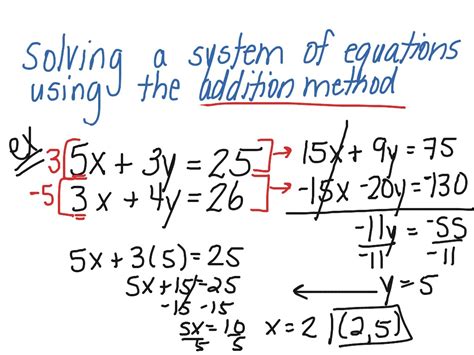 Solving a system of equations
using the addition method
ex
3[5x + 3y = 25] → 15x + 9y = 75
-5[3x + 4y = 26] → -15x -20y = -130
-11y = -55
-11 -11
5x + 3(5) = 25
y = 5
5x + 15 = 25
-15 -15
5x = 10
5 5
x = 2 (2,5)